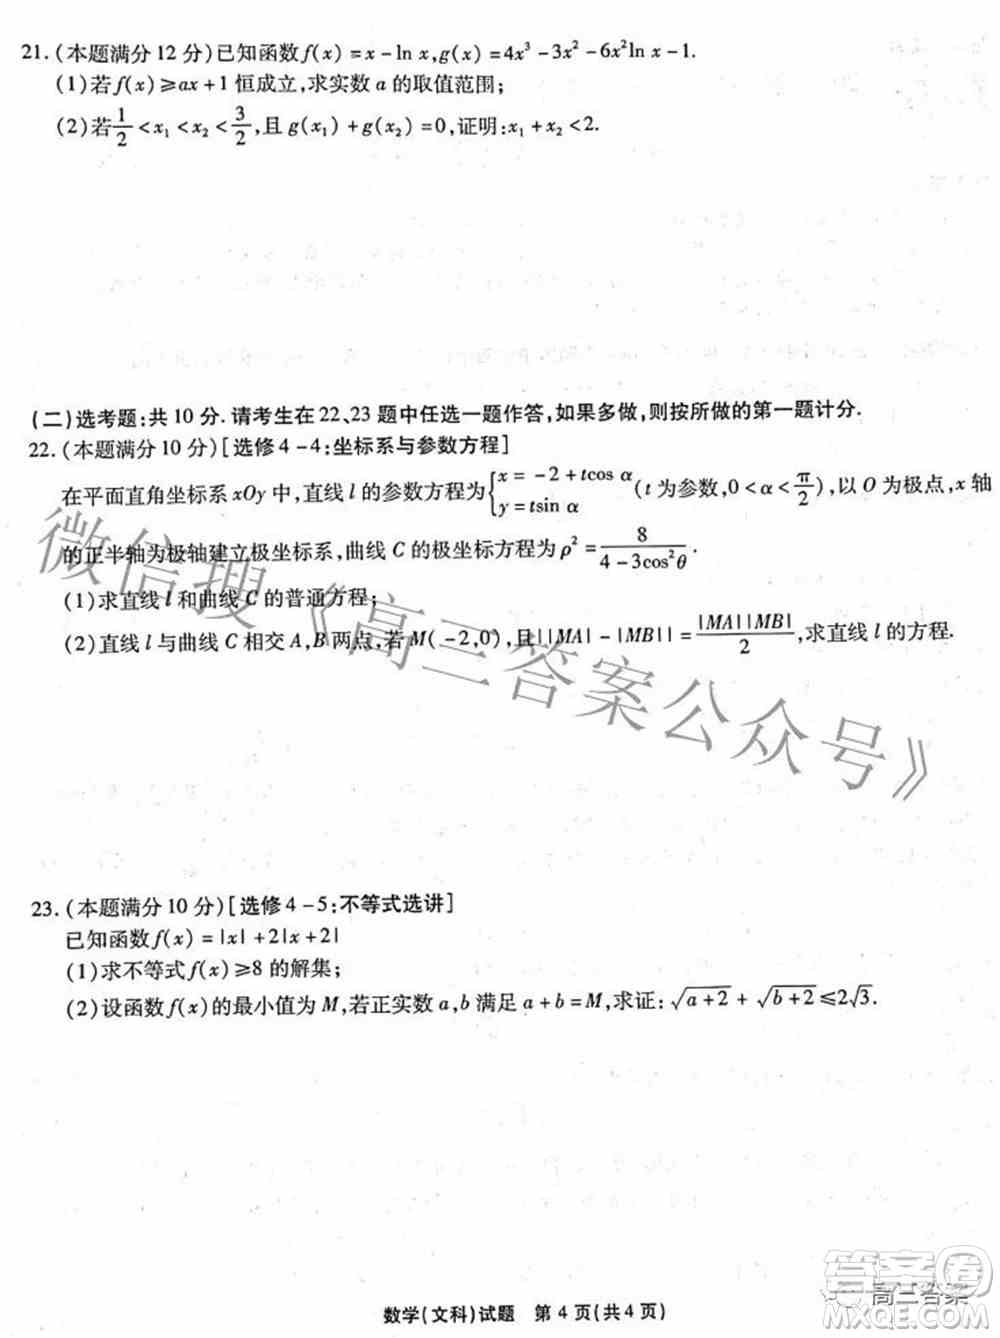 21.(本题满分12分)已知函数f(x)=x-ln x,g(x)=4x³-3x²-6x²ln x-1.
(1)若f(x)≥ax+1恒成立,求实数a的取值范围;
(2)若1/2<x₁<x₂<3/2,且g(x₁)+g(x₂)=0,证明:x₁+x₂<2.
(二)选考题:共10分.请考生在22、23题中任选一题作答,如果多做,则按所做的第一题计分.
22.(本题满分10分)[选修4-4:坐标系与参数方程]
在平面直角坐标系xOy中,直线l的参数方程为{x=-2+tcos α y=tsin α(t为参数,0<α<π/2),以O为极点,x轴
的正半轴为极轴建立极坐标系,曲线C的极坐标方程为ρ²=8/(4-3cos²θ).
(1)求直线l和曲线C的普通方程;
(2)直线l与曲线C相交A,B两点,若M(-2,0),且||MA|-|MB||=|MA||MB|/2,求直线l的方程.
微信搜《高三答案公众号》
23.(本题满分10分)[选修4-5:不等式选讲]
已知函数f(x)=|x|+2|x+2|
(1)求不等式f(x)≥8的解集;
(2)设函数f(x)的最小值为M,若正实数a,b满足a+b=M,求证:√(a+2)+√(b+2)≤2√3.
数学(文科)试题 第4页(共4页)
答案圈
高三答案
MXQE.COM